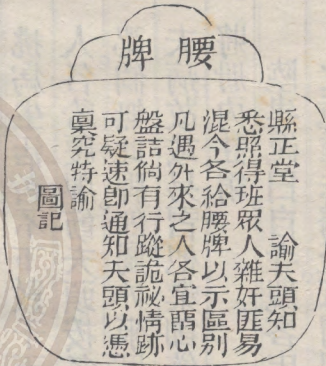 腰牌
縣正堂 諭夫頭知
悉照得班眾人雜奸匪易
混今各給腰牌以示區別
凡遇外來之人各宜留心
盤詰倘有行蹤詭祕情跡
可疑速即通知夫頭以憑
稟究特諭
圖記